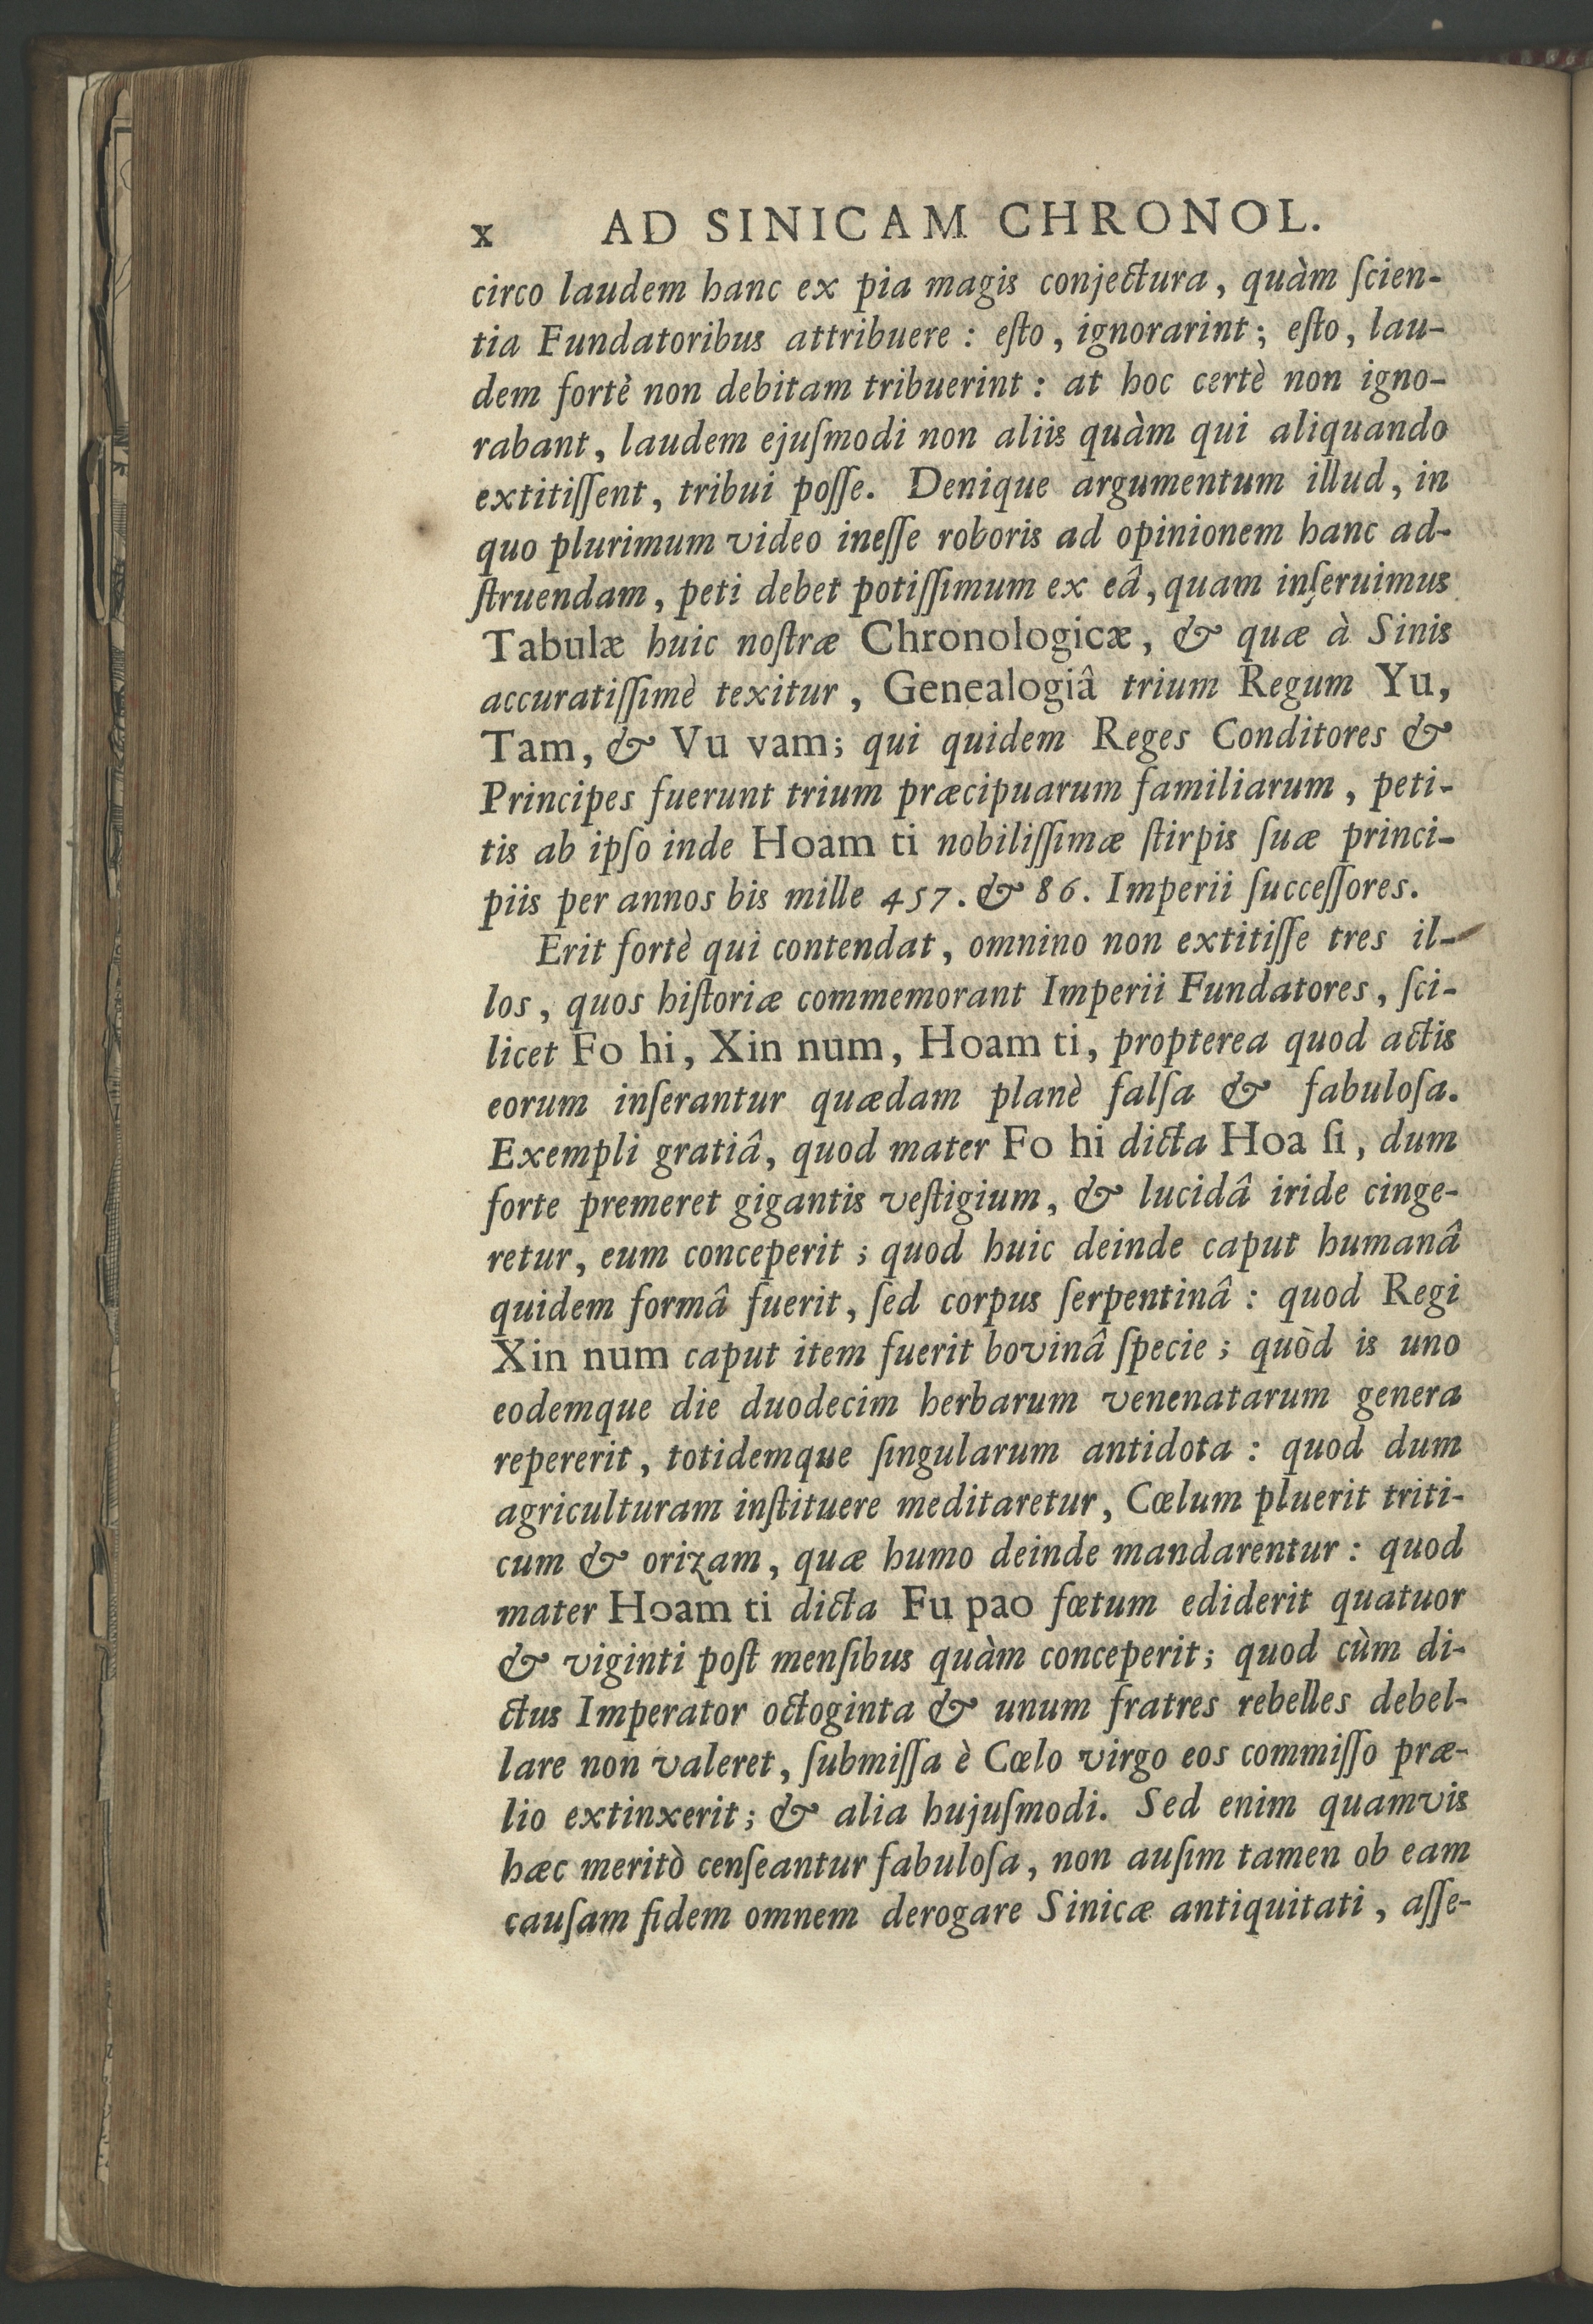 x AD SINICAM CHRONOL.
circo laudem hanc ex pia magis conjectura, quàm ſcien-
tia Fundatoribus attribuere : eſto, ignorarint; eſto, lau-
dem fortè non debitam tribuerint : at hoc certè non igno-
rabant, laudem ejuſmodi non aliis quàm qui aliquando
extitiſſent, tribui poſſe. Denique argumentum illud, in
quo plurimum video ineſſe roboris ad opinionem hanc ad-
ſtruendam, peti debet potiſſimum ex eâ, quam inſeruimus
Tabulæ huic noſtræ Chronologicæ, & quæ à Sinis
accuratiſſimè texitur, Genealogiâ trium Regum Yu,
Tam, & Vu vam; qui quidem Reges Conditores &
Principes fuerunt trium præcipuarum familiarum, peti-
tis ab ipſo inde Hoam ti nobiliſſimæ ſtirpis ſuæ princi-
piis per annos bis mille 457. & 86. Imperii ſucceſſores.
Erit fortè qui contendat, omnino non extitiſſe tres il-
los, quos hiſtoriæ commemorant Imperii Fundatores, ſci-
licet Fo hi, Xin num, Hoam ti, propterea quod actis
eorum inſerantur quædam planè falſa & fabuloſa.
Exempli gratiâ, quod mater Fo hi dicta Hoa ſi, dum
forte premeret gigantis veſtigium, & lucidâ iride cinge-
retur, eum conceperit ; quod huic deinde caput humanâ
quidem formâ fuerit, ſed corpus ſerpentinâ : quod Regi
Xin num caput item fuerit bovinâ ſpecie ; quòd is uno
eodemque die duodecim herbarum venenatarum genera
repererit, totidemque ſingularum antidota : quod dum
agriculturam inſtituere meditaretur, Cœlum pluerit triti-
cum & orizam, quæ humo deinde mandarentur : quod
mater Hoam ti dicta Fu pao fœtum ediderit quatuor
& viginti poſt menſibus quàm conceperit; quod cùm di-
ctus Imperator octoginta & unum fratres rebelles debel-
lare non valeret, ſubmiſſa è Cœlo virgo eos commiſſo præ-
lio extinxerit; & alia hujuſmodi. Sed enim quamvis
hæc meritò cenſeantur fabuloſa, non auſim tamen ob eam
cauſam fidem omnem derogare Sinicæ antiquitati, aſſe-